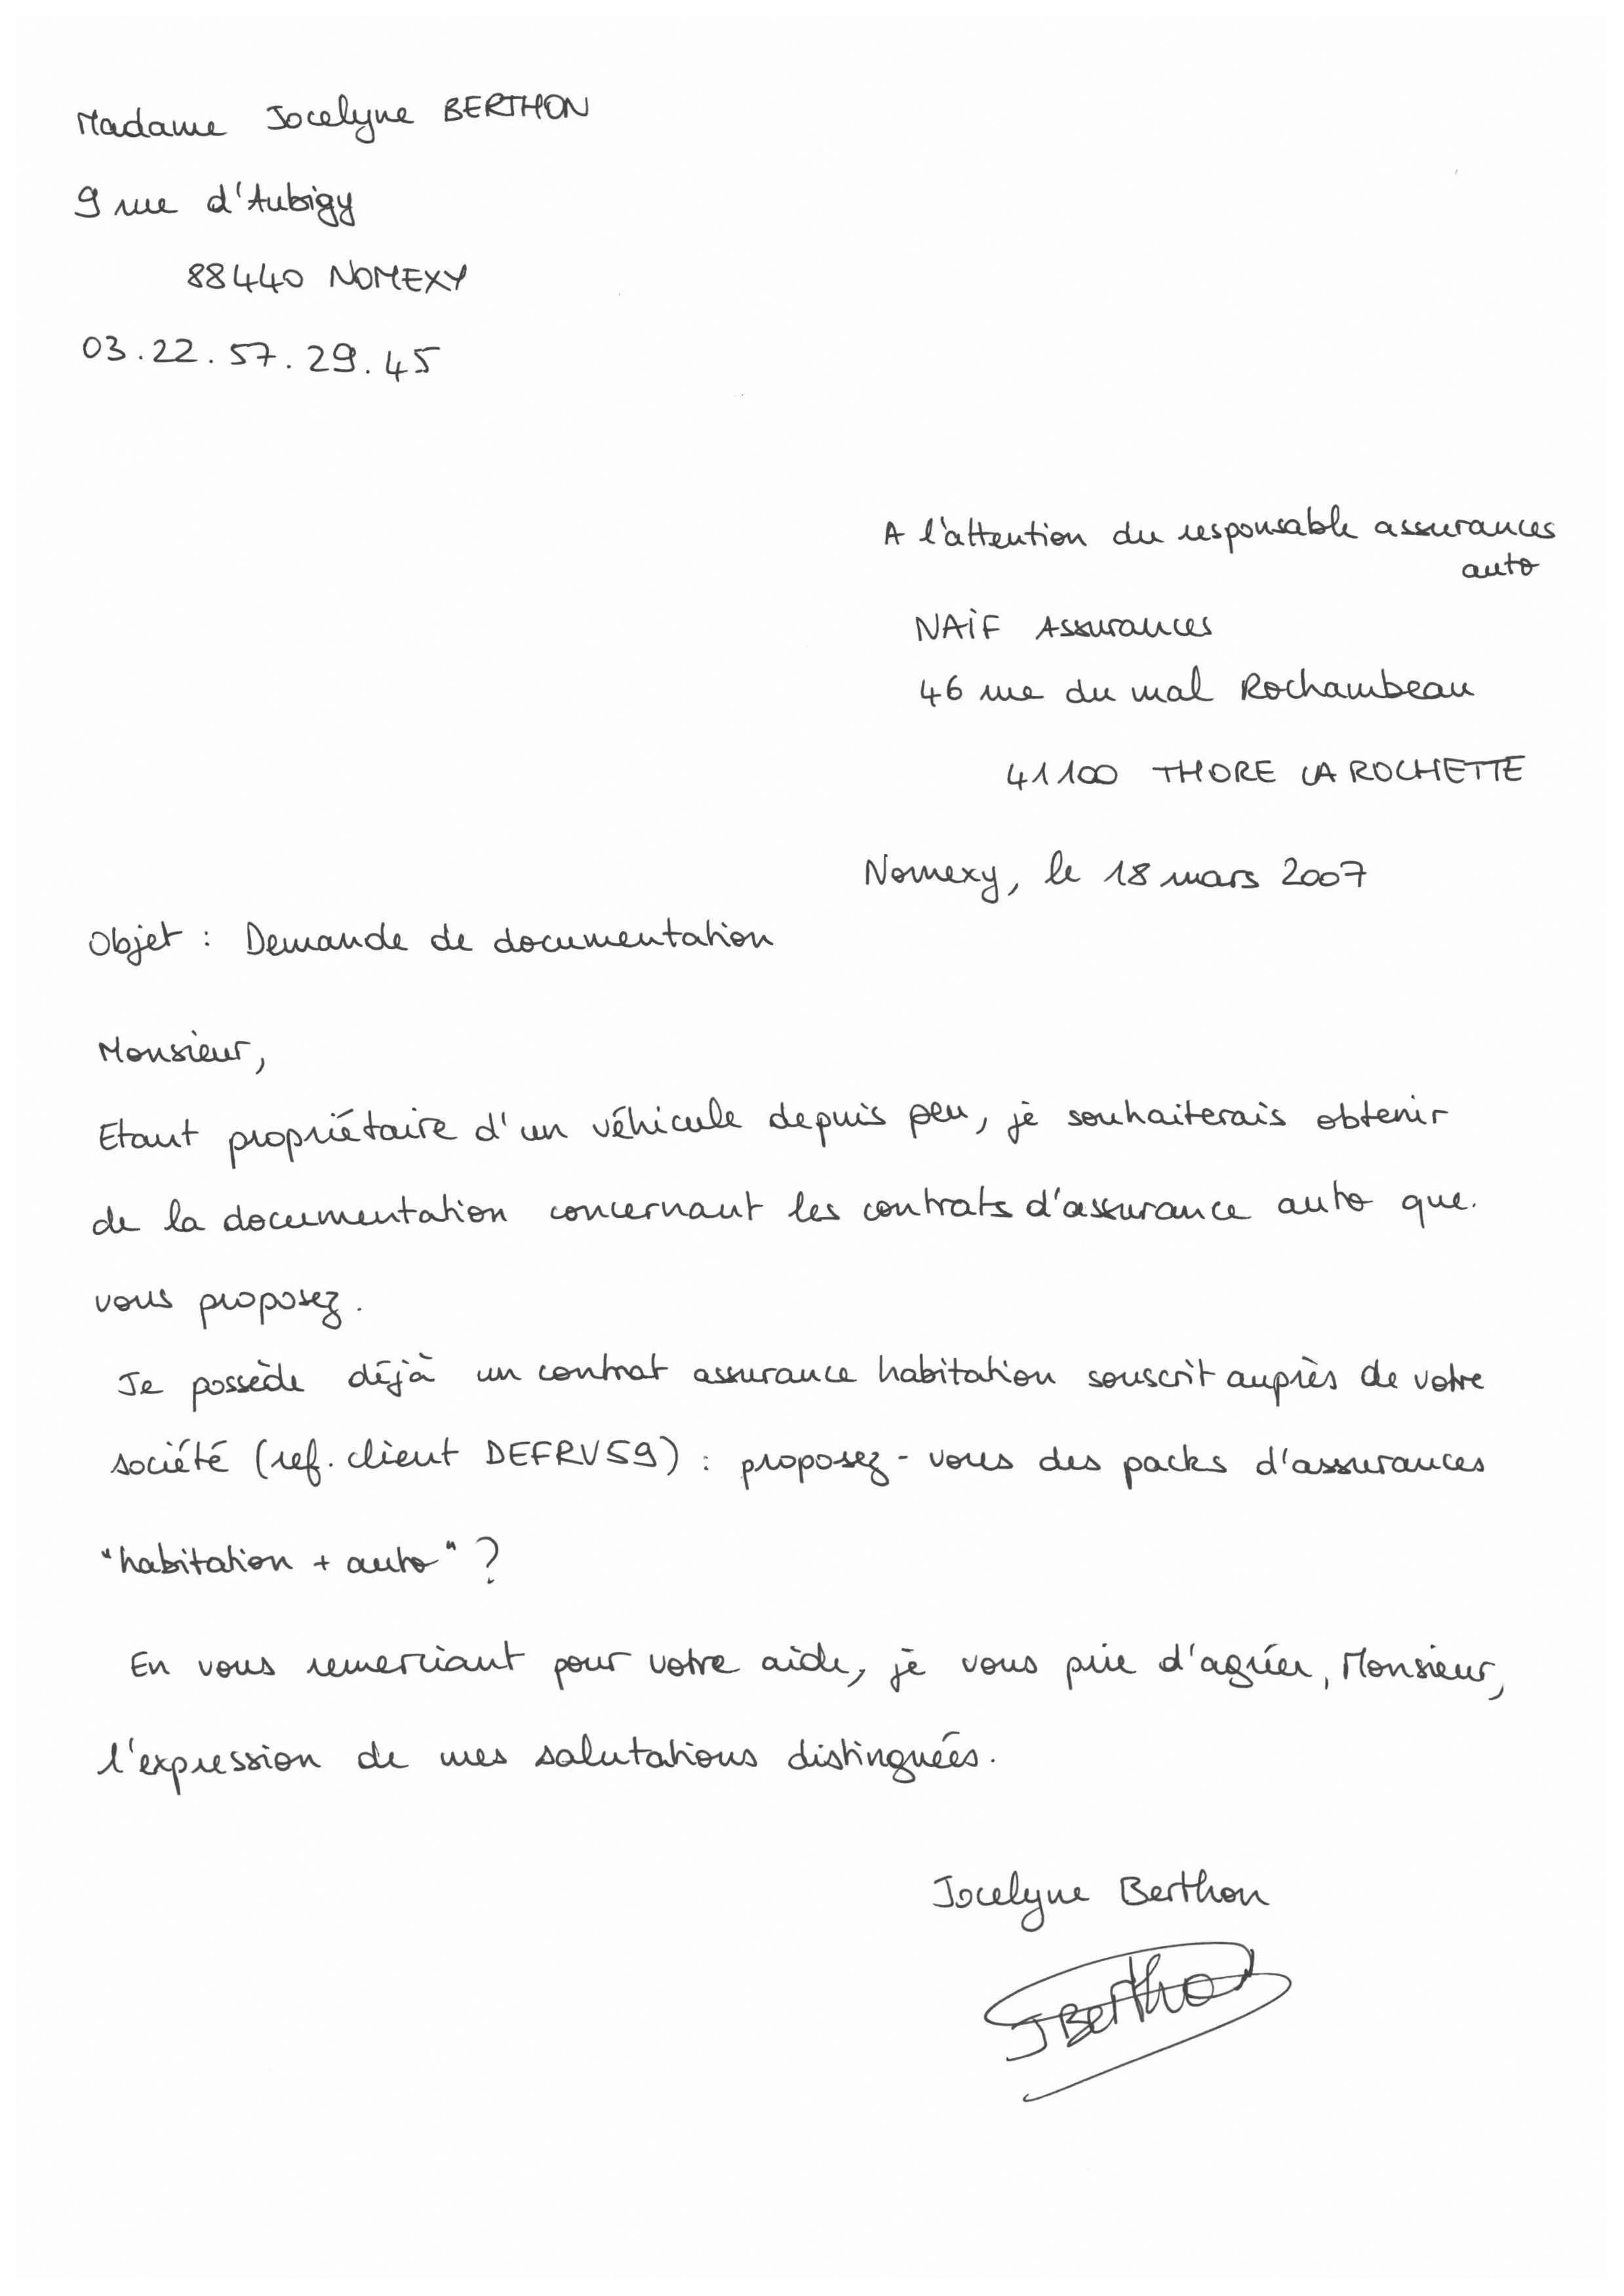 Madame Jocelyne BERTHON
9 rue d'Aubigy
88440 NOMEXY
03.22.57.29.45
A l'attention du responsable assurances
auto
NAIF Assurances
46 rue du mal Rochambeau
41100 THORE LA ROCHETTE
Nomexy, le 18 mars 2007
Objet : Demande de documentation
Monsieur,
Etant propriétaire d'un véhicule depuis peu, je souhaiterais obtenir
de la documentation concernant les contrats d'assurance auto que
vous proposez.
Je possède déjà un contrat assurance habitation souscrit auprès de votre
société (ref. client DEFRV59) : proposez-vous des packs d'assurances
"habitation + auto" ?
En vous remerciant pour votre aide, je vous prie d'agréer, Monsieur,
l'expression de mes salutations distinguées.
Jocelyne Berthon
JBertho